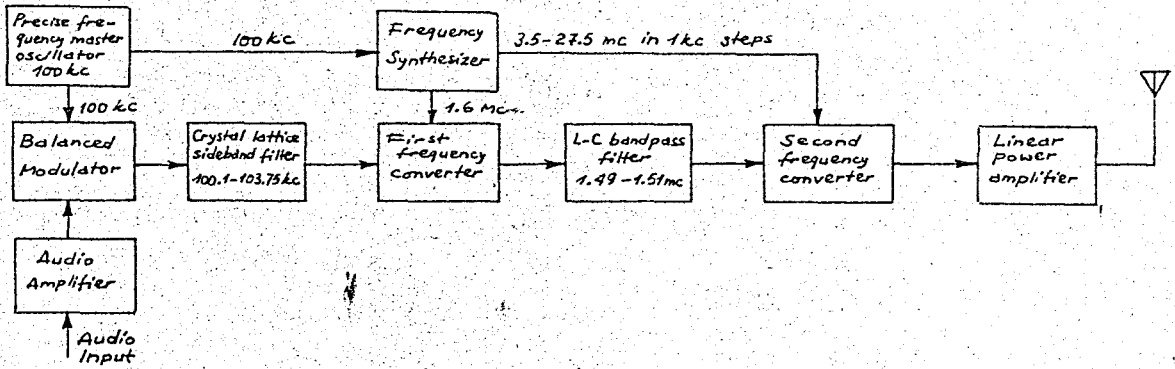 Precise fre-
quency master
oscillator
100 kc
100 kc
Frequency
Synthesizer
3.5-27.5 mc in 1 kc steps
100 kc
1.6 Mc
Balanced
Modulator
Crystal lattice
sideband filter
100.1-103.75 kc
First
frequency
converter
L-C bandpass
filter
1.49-1.51 mc
Second
frequency
converter
Linear
power
amplifier
Audio
Amplifier
Audio
Input